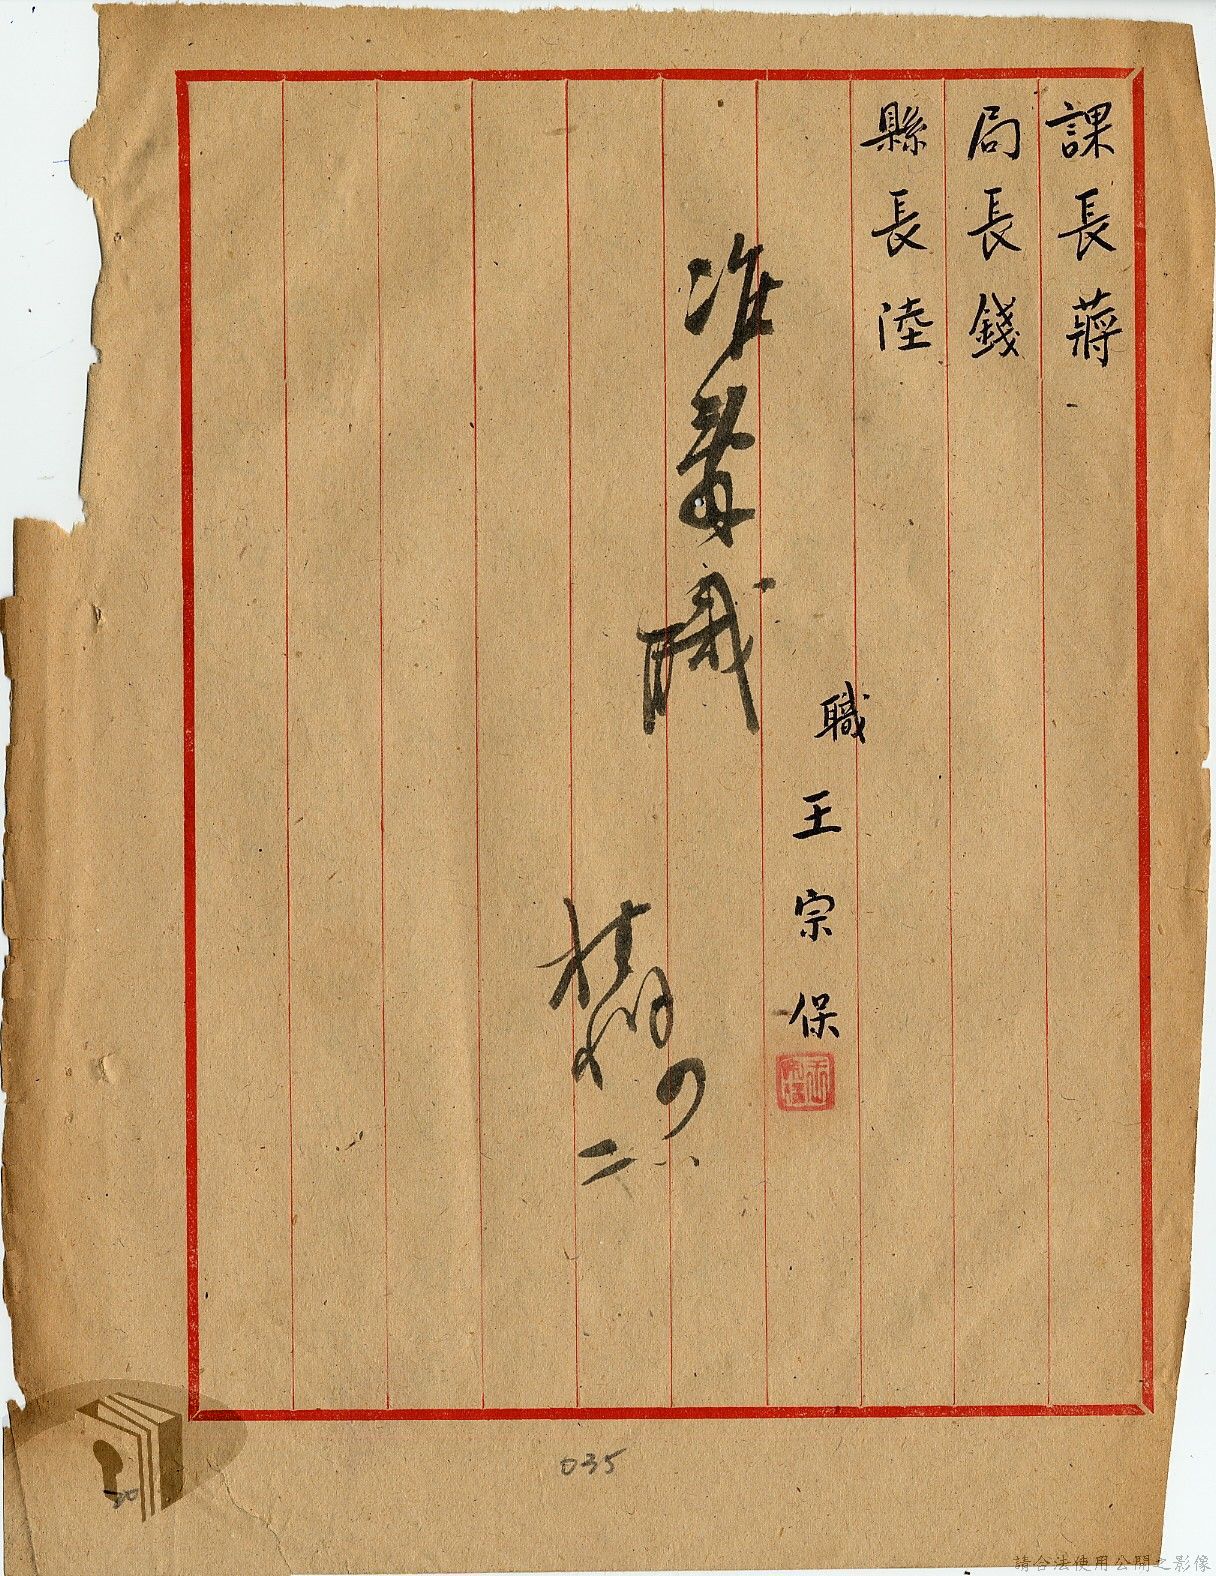 課長蔣
局長錢
縣長陸
職王宗保
准
職
二
035
請合法使用公開之影像